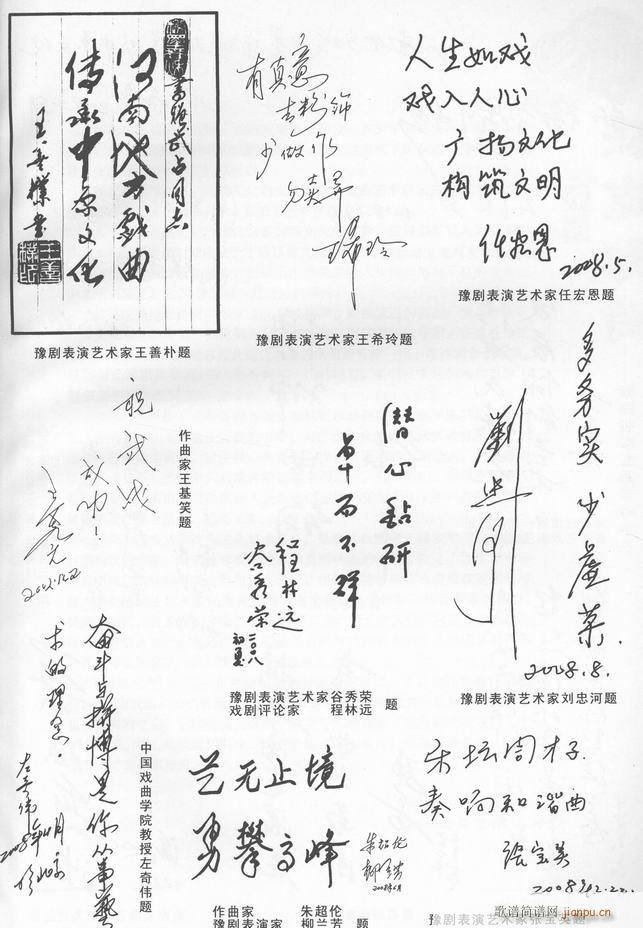 河南地方戏曲
传承中原文化
王善朴书
豫剧表演艺术家王善朴题
有真意
去粉饰
少做作
勿卖弄
王希玲
豫剧表演艺术家王希玲题
人生如戏
戏入人心
广扬文化
构筑文明
任宏恩
2008.5.
豫剧表演艺术家任宏恩题
祝武战
成功!
作曲家王基笑题
潜心钻研
卓而不群
程林远
谷秀荣
二〇〇八
初夏
豫剧表演艺术家谷秀荣
戏剧评论家 程林远 题
多务实 少虚荣.
刘忠河
2008.8.
豫剧表演艺术家刘忠河题
奋斗与拼博是你从事艺
术的理念
左奇伟
中国戏曲学院教授左奇伟题
艺无止境
勇攀高峰
朱超伦
柳兰芳
2008年6月
作曲家 朱超伦
豫剧表演家 柳兰芳 题
乐坛周才子
奏响和谐曲
张宝英
2008年12.22.
豫剧表演艺术家张宝英题
歌谱简谱网
jianpu.cn